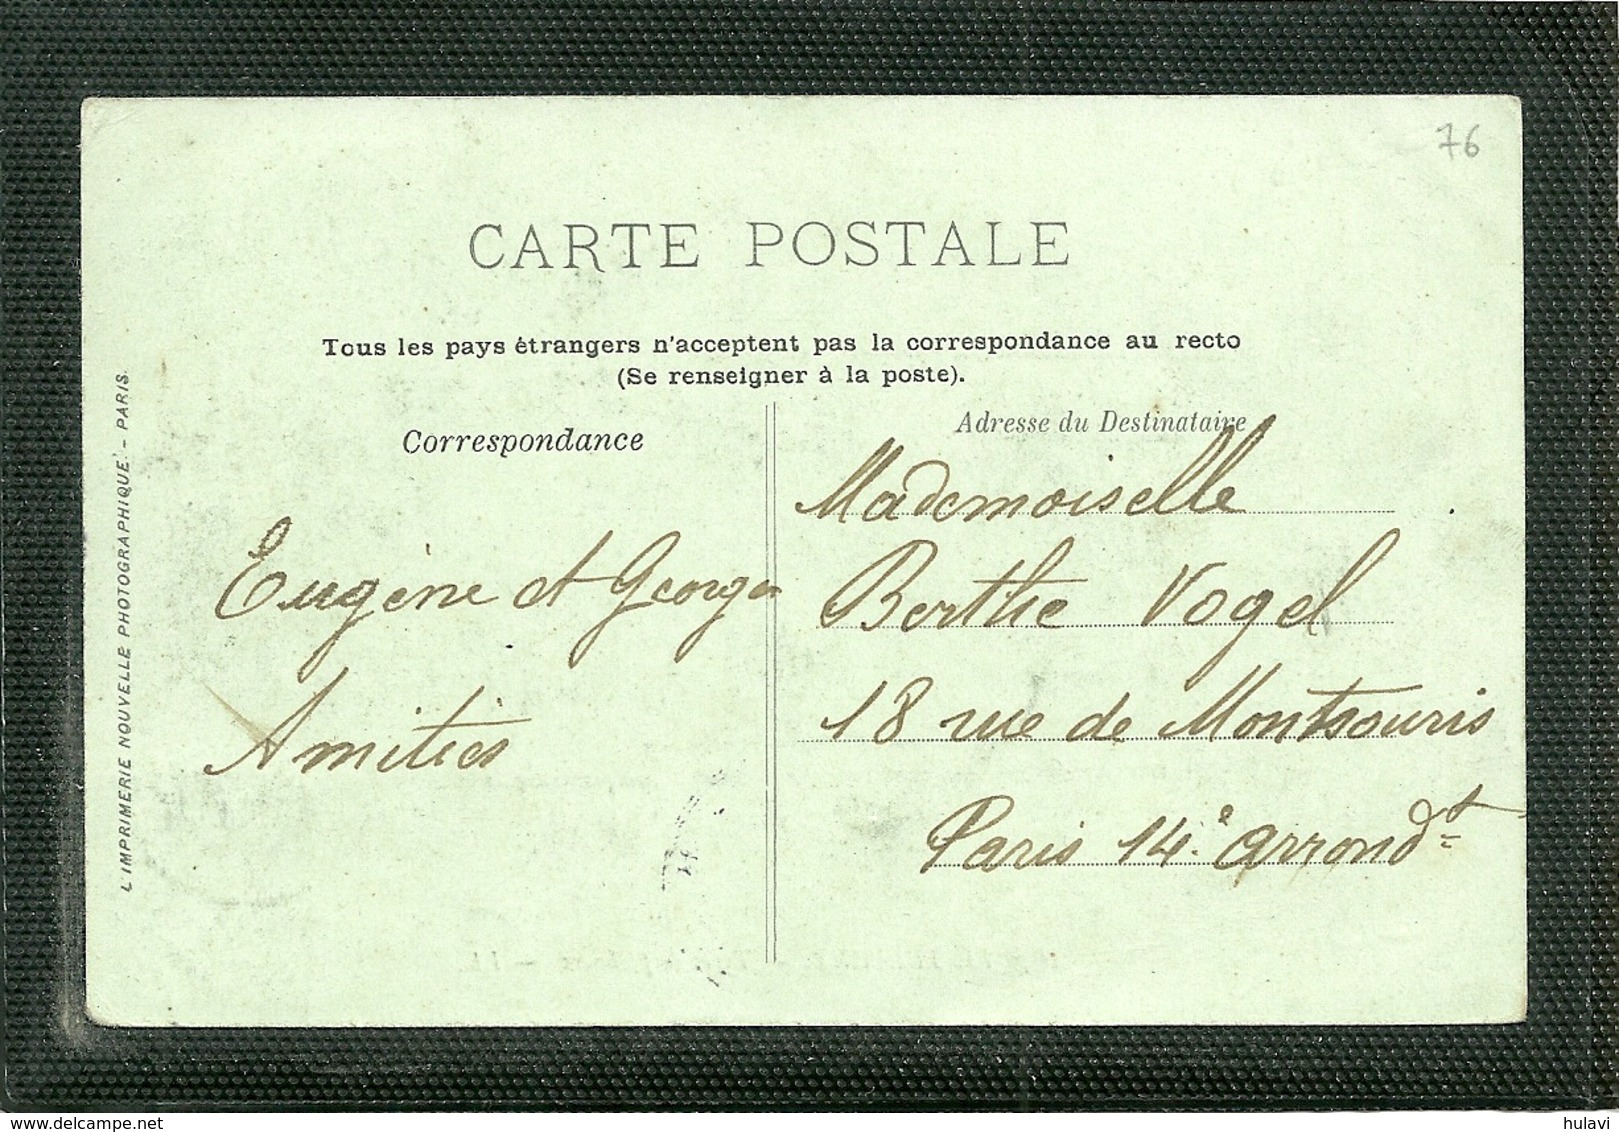 76
CARTE POSTALE
Tous les pays étrangers n'acceptent pas la correspondance au recto
(Se renseigner à la poste).
Correspondance
Eugène et Georges
Amitiés
Adresse du Destinataire
Mademoiselle
Berthe Vogel
18 rue de Montsouris
Paris 14.e arrondt
L'IMPRIMERIE NOUVELLE PHOTOGRAPHIQUE. - PARIS.
delcampe.net
hulavi